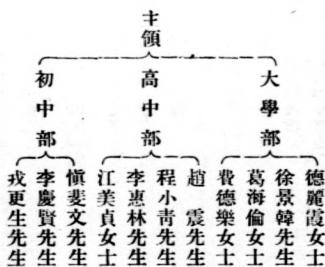 主領
大學部
德麗霞女士
徐景韓先生
葛海倫女士
費德樂女士
高中部
趙 震先生
程小青先生
李惠林先生
江美貞女士
初中部
愼斐文先生
李慶賢先生
戎更生先生